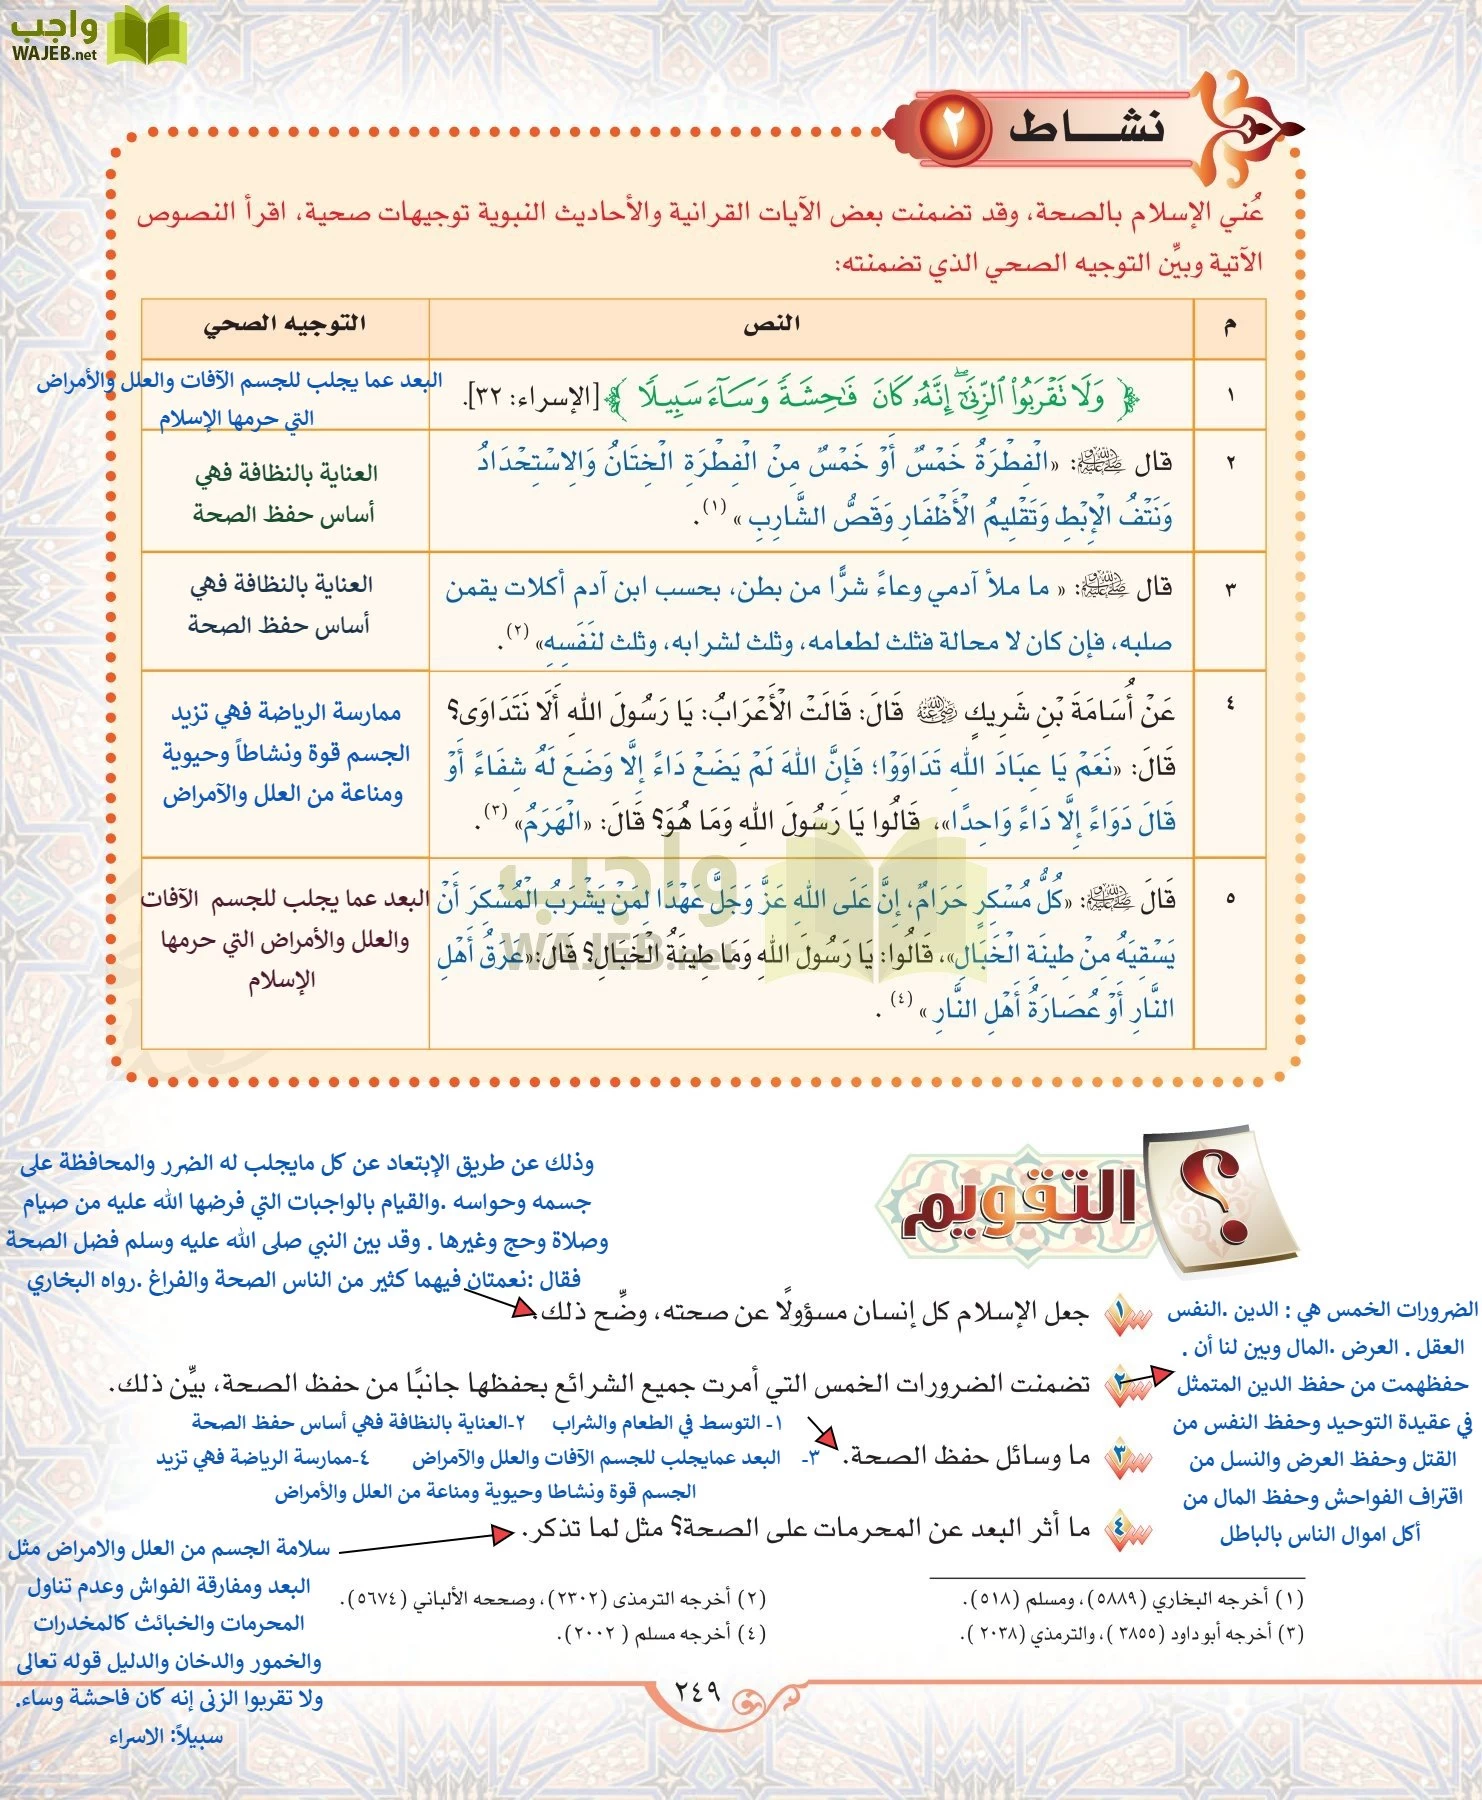 واجب
WAJEB.net
نشاط ٢
عُني الإسلام بالصحة، وقد تضمنت بعض الآيات القرانية والأحاديث النبوية توجيهات صحية، اقرأ النصوص
الآتية وبيِّن التوجيه الصحي الذي تضمنته:
م النص التوجيه الصحي
١ ﴿ وَلَا تَقْرَبُوا۟ ٱلزِّنَىٰٓ ۖ إِنَّهُۥ كَانَ فَـٰحِشَةً وَسَآءَ سَبِيلًا ﴾ [الإسراء: ٣٢].
البعد عما يجلب للجسم الآفات والعلل والأمراض
التي حرمها الإسلام
٢ قال ﷺ: «الْفِطْرَةُ خَمْسٌ أَوْ خَمْسٌ مِنْ الْفِطْرَةِ الْخِتَانُ وَالِاسْتِحْدَادُ
وَنَتْفُ الْإِبْطِ وَتَقْلِيمُ الْأَظْفَارِ وَقَصُّ الشَّارِبِ » (١) .
العناية بالنظافة فهي
أساس حفظ الصحة
٣ قال ﷺ: « ما ملأ آدمي وعاءً شرًّا من بطن، بحسب ابن آدم أكلات يقمن
صلبه، فإن كان لا محالة فثلث لطعامه، وثلث لشرابه، وثلث لنَفَسِهِ» (٢) .
العناية بالنظافة فهي
أساس حفظ الصحة
٤ عَنْ أُسَامَةَ بْنِ شَرِيكٍ رضي الله عنه قَالَ: قَالَتْ الْأَعْرَابُ: يَا رَسُولَ اللهِ أَلَا نَتَدَاوَى؟
قَالَ: «نَعَمْ يَا عِبَادَ اللهِ تَدَاوَوْا؛ فَإِنَّ اللهَ لَمْ يَضَعْ دَاءً إِلَّا وَضَعَ لَهُ شِفَاءً أَوْ
قَالَ دَوَاءً إِلَّا دَاءً وَاحِدًا»، قَالُوا يَا رَسُولَ اللهِ وَمَا هُوَ؟ قَالَ: «الْهَرَمُ» (٣) .
ممارسة الرياضة فهي تزيد
الجسم قوة ونشاطاً وحيوية
ومناعة من العلل والآمراض
٥ قَالَ ﷺ: «كُلُّ مُسْكِرٍ حَرَامٌ، إِنَّ عَلَى اللهِ عَزَّ وَجَلَّ عَهْدًا لِمَنْ يَشْرَبُ الْمُسْكِرَ أَنْ
يَسْقِيَهُ مِنْ طِينَةِ الْخَبَالِ»، قَالُوا: يَا رَسُولَ اللهِ وَمَا طِينَةُ الْخَبَالِ؟ قَالَ:«عَرَقُ أَهْلِ
النَّارِ أَوْ عُصَارَةُ أَهْلِ النَّارِ » (٤) .
البعد عما يجلب للجسم الآفات
والعلل والأمراض التي حرمها
الإسلام
واجب
WAJEB.net
التقويم
وذلك عن طريق الإبتعاد عن كل مايجلب له الضرر والمحافظة على
جسمه وحواسه .والقيام بالواجبات التي فرضها الله عليه من صيام
وصلاة وحج وغيرها . وقد بين النبي صلى الله عليه وسلم فضل الصحة
فقال :نعمتان فيهما كثير من الناس الصحة والفراغ .رواه البخاري
١ جعل الإسلام كل إنسان مسؤولًا عن صحته، وضِّح ذلك.
الضرورات الخمس هي : الدين .النفس
العقل . العرض .المال وبين لنا أن .
حفظهمت من حفظ الدين المتمثل
في عقيدة التوحيد وحفظ النفس من
القتل وحفظ العرض والنسل من
اقتراف الفواحش وحفظ المال من
أكل اموال الناس بالباطل
٢ تضمنت الضرورات الخمس التي أمرت جميع الشرائع بحفظها جانبًا من حفظ الصحة، بيِّن ذلك.
١- التوسط في الطعام والشراب ٢-العناية بالنظافة فهي أساس حفظ الصحة
٣ ما وسائل حفظ الصحة.
٣- البعد عمايجلب للجسم الآفات والعلل والآمراض ٤-ممارسة الرياضة فهي تزيد
الجسم قوة ونشاطا وحيوية ومناعة من العلل والأمراض
٤ ما أثر البعد عن المحرمات على الصحة؟ مثل لما تذكر.
سلامة الجسم من العلل والامراض مثل
البعد ومفارقة الفواش وعدم تناول
المحرمات والخبائث كالمخدرات
والخمور والدخان والدليل قوله تعالى
ولا تقربوا الزنى إنه كان فاحشة وساء.
سبيلاً: الاسراء
(١) أخرجه البخاري (٥٨٨٩)، ومسلم (٥١٨).
(٢) أخرجه الترمذى (٢٣٠٢)، وصححه الألباني (٥٦٧٤).
(٣) أخرجه أبو داود (٣٨٥٥ )، والترمذي (٢٠٣٨ ).
(٤) أخرجه مسلم ( ٢٠٠٢).
٢٤٩